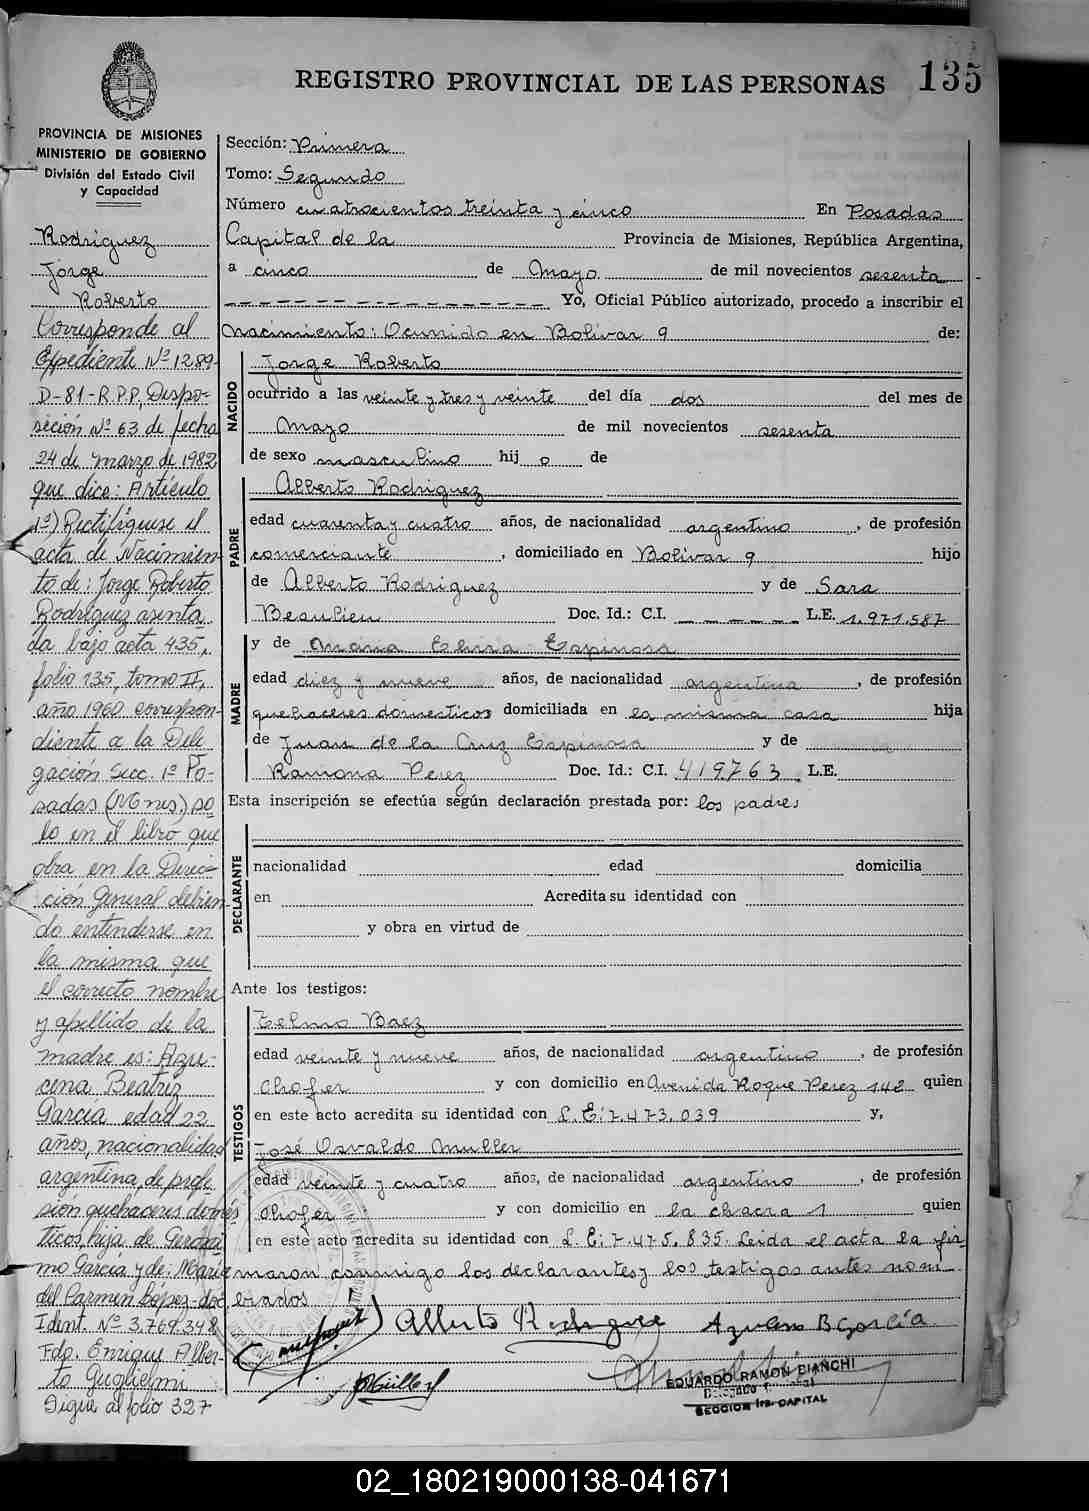 REGISTRO PROVINCIAL DE LAS PERSONAS 135
PROVINCIA DE MISIONES
MINISTERIO DE GOBIERNO
División del Estado Civil
y Capacidad
Rodriguez
Jorge
Roberto
Corresponde al
Expediente Nº 1289-
D-81-R.P.P, Dispo-
sición Nº 63 de fecha
24 de marzo de 1982
que dice: Artículo
1º) Rectifíquese el
acta de Nacimien
to de: Jorge Roberto
Rodríguez asenta
da bajo acta 435,
folio 135, tomo II,
año 1960 correspon-
diente a la Dele
gación Secc. 1º Po-
sadas (Mnes.) so
lo en el libro que
obra en la Direc-
ción General debien
do entenderse en
la misma que
el correcto nombre
y apellido de la
madre es: Azu-
cena Beatriz
García edad 22
años, nacionalidad
argentina, de profe-
sión quehaceres domés
ticos, hija de Geróni
mo García y de: María
del Carmen López-doc
Ident. Nº 3.769.348
Fdo. Enrique Alber-
to Guglielmi
Sigue al folio 327
Sección: Primera
Tomo: Segundo
Número cuatrocientos treinta y cinco En Posadas
Capital de la Provincia de Misiones, República Argentina,
a cinco de Mayo de mil novecientos sesenta
Yo, Oficial Público autorizado, procedo a inscribir el
nacimiento: Ocurrido en Bolivar 9 de:
NACIDO
Jorge Roberto
ocurrido a las veinte y tres y veinte del día dos del mes de
Mayo de mil novecientos sesenta
de sexo masculino hij o de
PADRE
Alberto Rodriguez
edad cuarenta y cuatro años, de nacionalidad argentino, de profesión
comerciante, domiciliado en Bolivar 9 hijo
de Alberto Rodriguez y de Sara
Beaulieu Doc. Id.: C.I. L.E. 1.971.587
MADRE
y de Maria Elvira Espinosa
edad diez y nueve años, de nacionalidad argentina, de profesión
quehaceres domesticos domiciliada en la misma casa hija
de Juan de la Cruz Espinosa y de
Ramona Perez Doc. Id.: C.I. 419763 L.E.
Esta inscripción se efectúa según declaración prestada por: los padres
DECLARANTE
nacionalidad edad domicilia
en Acredita su identidad con
y obra en virtud de
Ante los testigos:
TESTIGOS
Telmo Baez
edad veinte y nueve años, de nacionalidad argentino, de profesión
chofer y con domicilio en Avenida Roque Perez 142 quien
en este acto acredita su identidad con L.E: 7.473.039 y,
José Osvaldo Muller
edad veinte y cuatro años, de nacionalidad argentino, de profesión
chofer y con domicilio en la chacra 1 quien
en este acto acredita su identidad con L.E: 7.475.835. Leida el acta la fir-
maron conmigo los declarantes y los testigos antes nom
brados
Alberto Rodriguez Azucena B García
JOMüller
EDUARDO RAMON BIANCHI
SECCION 1ra. CAPITAL
02_180219000138-041671